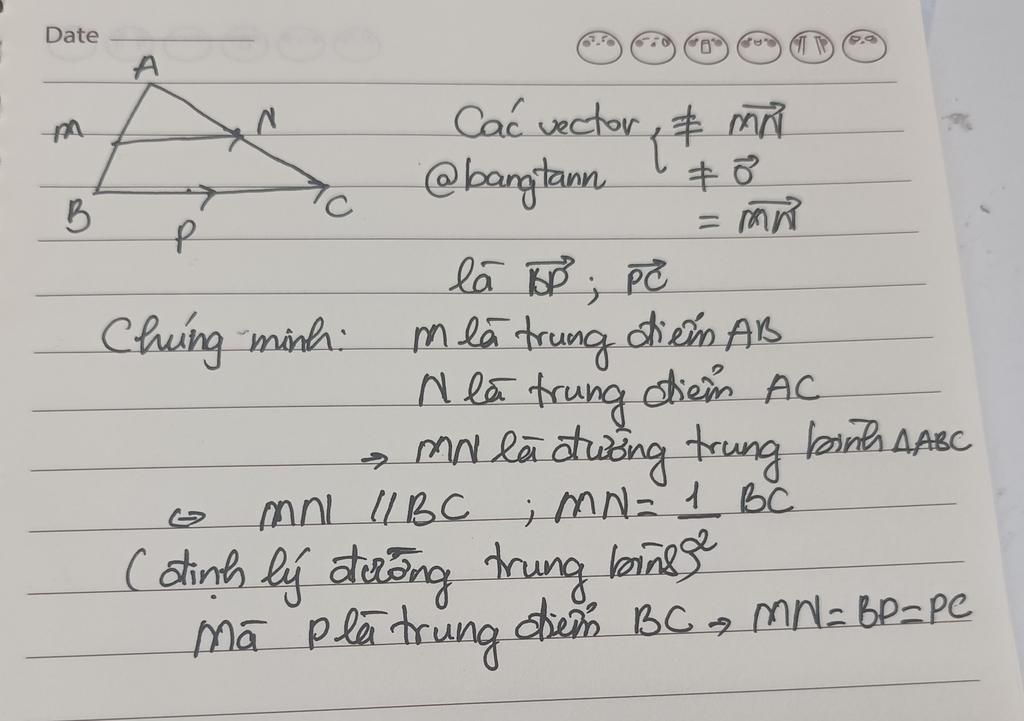 Date
A
M N
B C
P
Các vector, ≠ MN
@bangtann ≠ 0
= MN
là BP ; PC
Chứng minh: M là trung điểm AB
N là trung điểm AC
→ MN là đường trung bình ΔABC
⇔ MN // BC ; MN = 1/2 BC
(định lý đường trung bình)
Mà P là trung điểm BC → MN = BP = PC